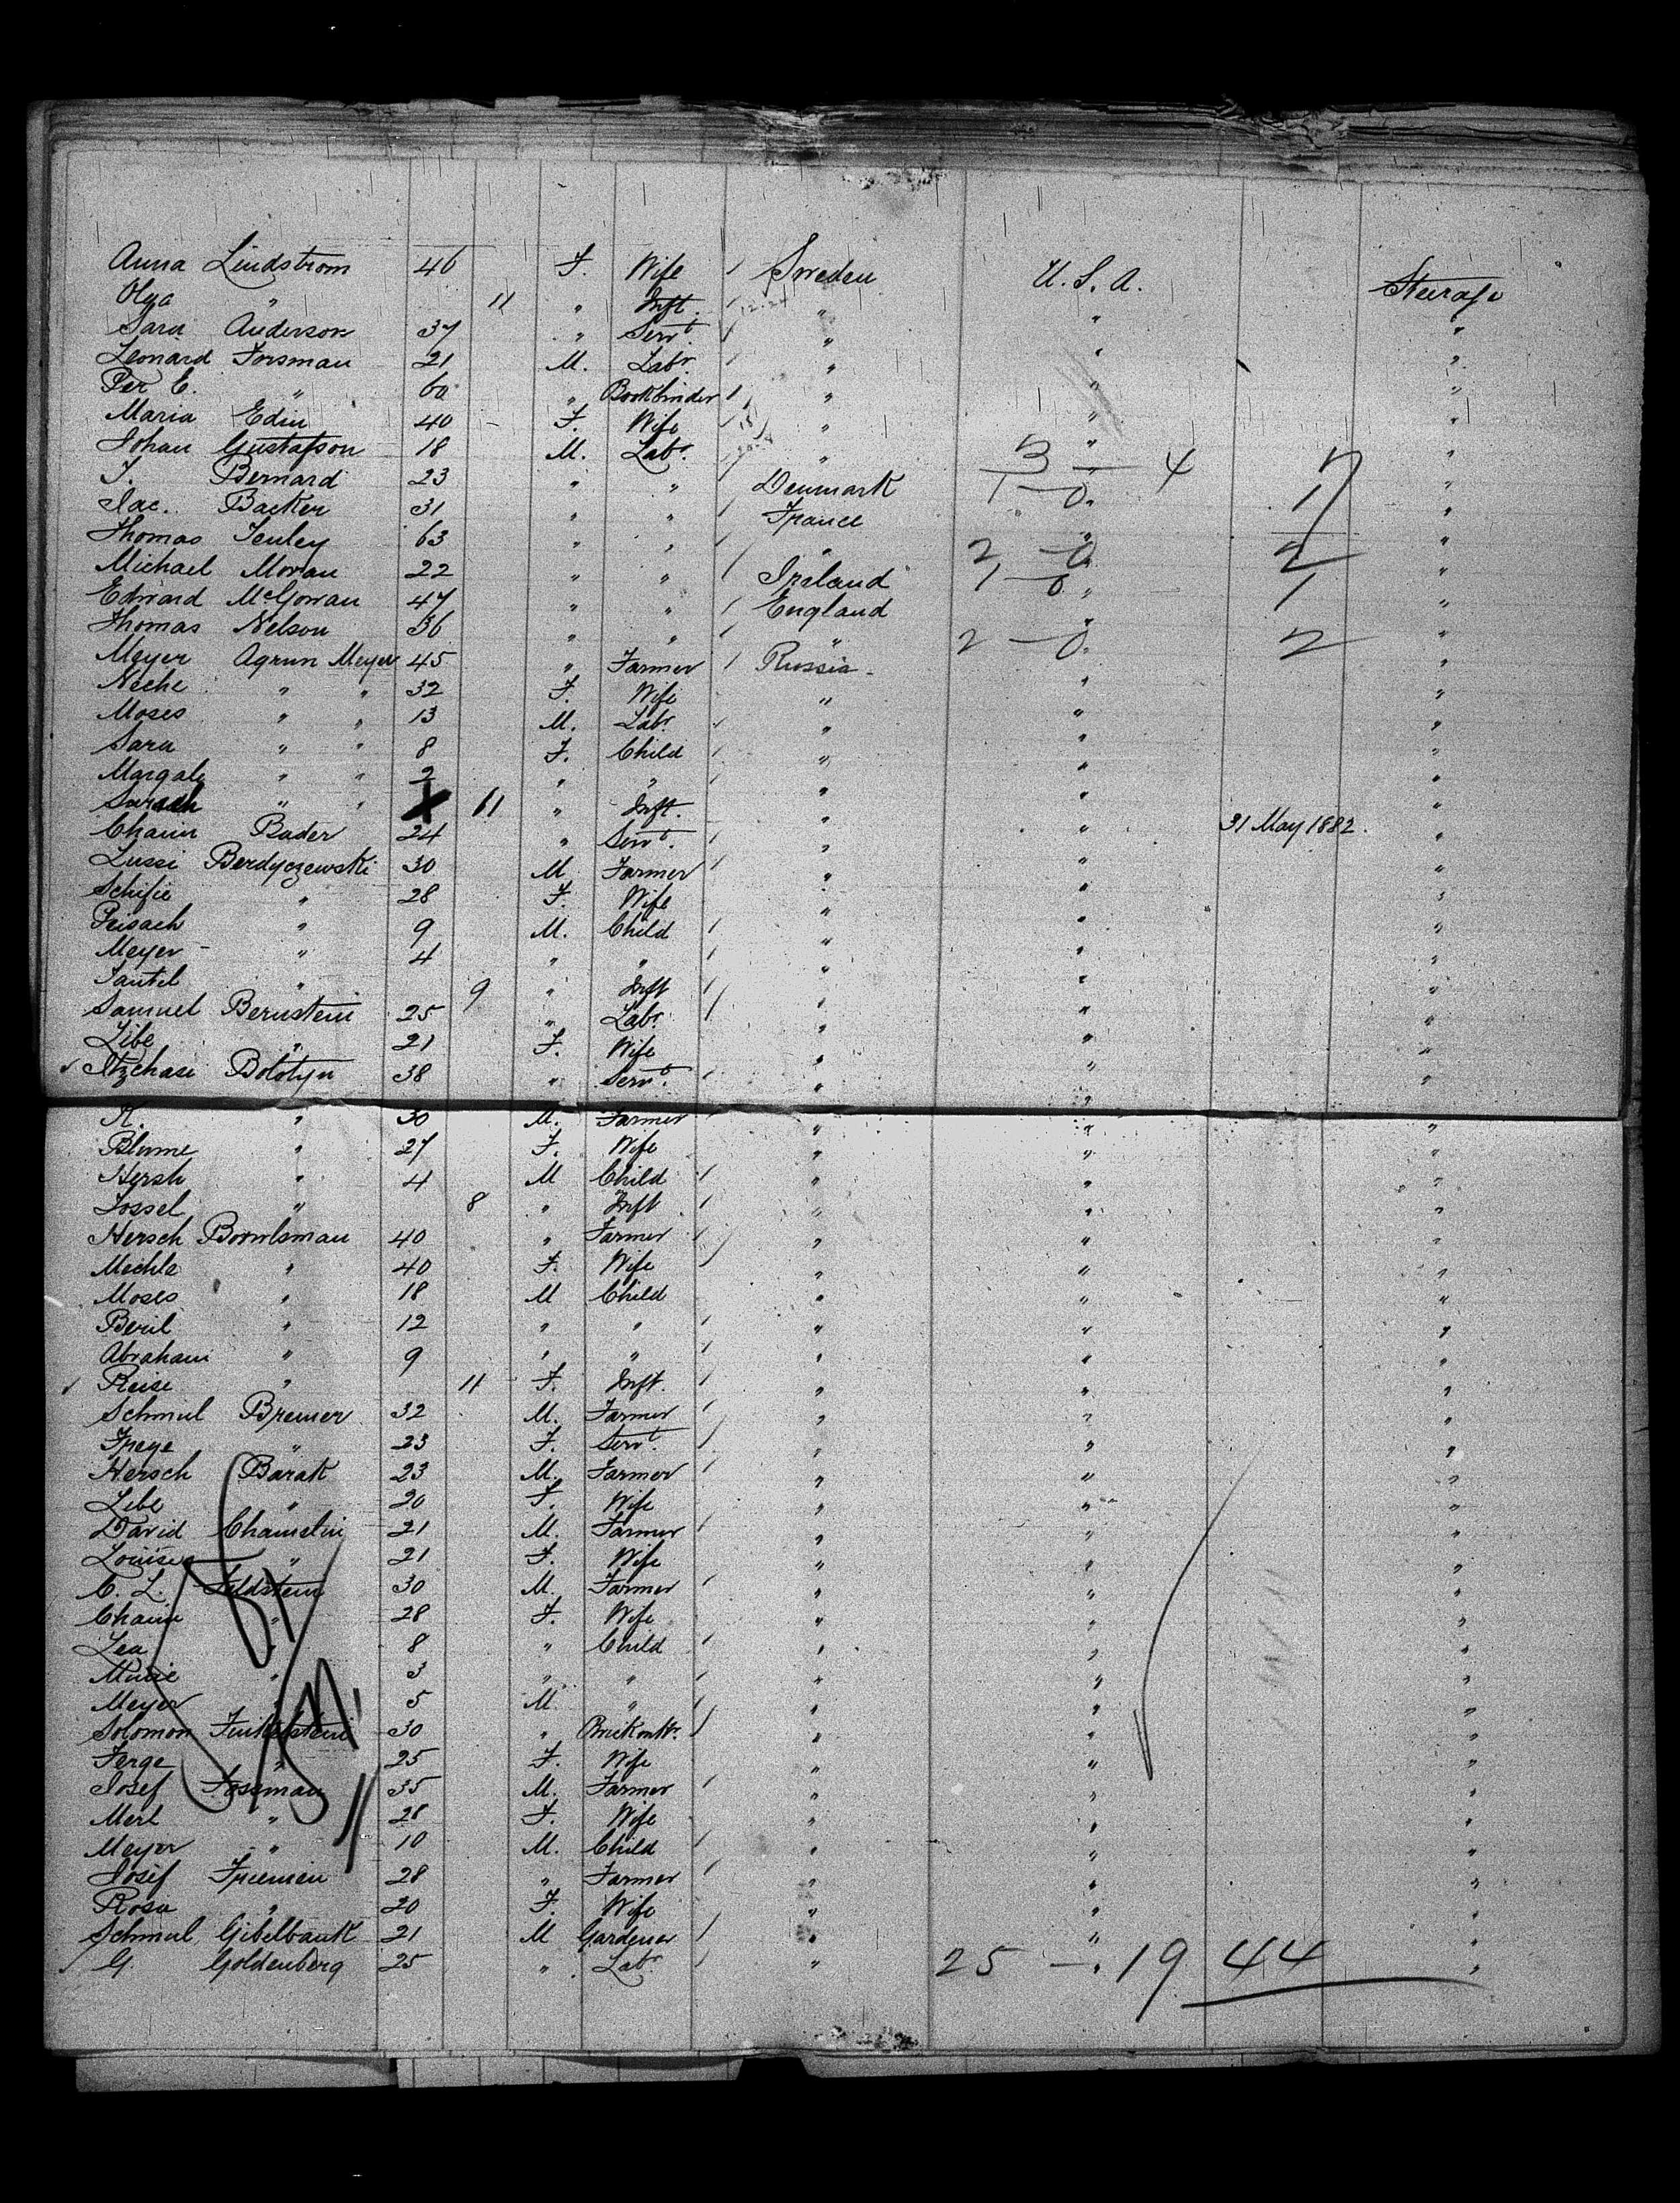 Anna Lindstrom 46 F. Wife Sweden U.S.A. Steerage
Olga " 11 " Inft. " " "
Sara Anderson 37 " Servt. " " "
Leonard Forsman 21 M. Labr. " " "
Per E. " 60 " Bookbinder " " "
Maria Edin 40 F. Wife " " "
Johan Gustafson 18 M. Labr. " " " 3 — 4 7
J. Bernard 23 " " Denmark " " 1 — 0 1
Jac. Backer 31 " " France " "
Thomas Fenley 63 " " " " " 2 — 0 2
Michael Moran 22 " " Ireland " " 1 — 0 1
Edward McGowan 47 " " England " "
Thomas Nelson 36 " " " " " 2 — 0 2
Meyer Agrun Meyer 45 " Farmer Russia " "
Neche " " 32 F. Wife " " "
Moses " " 13 M. Labr. " " "
Sara " " 8 F. Child " " "
Margale " " 2 " " " " "
" " 11 " Inft. " " "
Chaim Bader 24 " Servt. " " 31 May 1882. "
Lussi Berdyczewski 30 M Farmer " " "
Schifie " 28 F. Wife " " "
Peisach " 9 M. Child " " "
Meyer " 4 " " " " "
" 9 " Inft " " "
Samuel Bernstein 25 " Labr. " " "
Libe " 21 F. Wife " " "
Itzchase Bolotyn 38 " Servt. " " "
K. " 30 M. Farmer " " "
Blume " 27 F. Wife " " "
Hersh " 4 M Child " " "
Jossel " 8 " Inft " " "
Hersch 40 " Farmer " " "
Michle " 40 F. Wife " " "
Moses " 18 M Child " " "
Beril " 12 " " " " "
Abraham " 9 " " " " "
Reise " 11 F. Inft. " " "
Schmul Bremer 32 M. Farmer " " "
Freye " 23 F. Servt. " " "
Hersch Barak 23 M. Farmer " " "
Libe " 20 F. Wife " " "
David Chamelin 21 M. Farmer " " "
Louise " 21 F. Wife " " "
C. L. Feldstein 30 M. Farmer " " "
Chaim " 28 F. Wife " " "
Lea " 8 " Child " " "
" 3 " " " " "
Meyer " 5 M. " " " "
Solomon Finkelstein 30 " " " "
Ferge " 25 F. Wife " " "
Josef Fossman 35 M. Farmer " " "
Merl " 28 F. Wife " " "
Meyer " 10 M. Child " " "
Josef 28 " Farmer " " "
Rosa " 20 F. Wife " " "
Schmul Gibelbank 21 M Gardener " " "
G. Goldenberg 25 " Labr. " 25 — 19 44 "